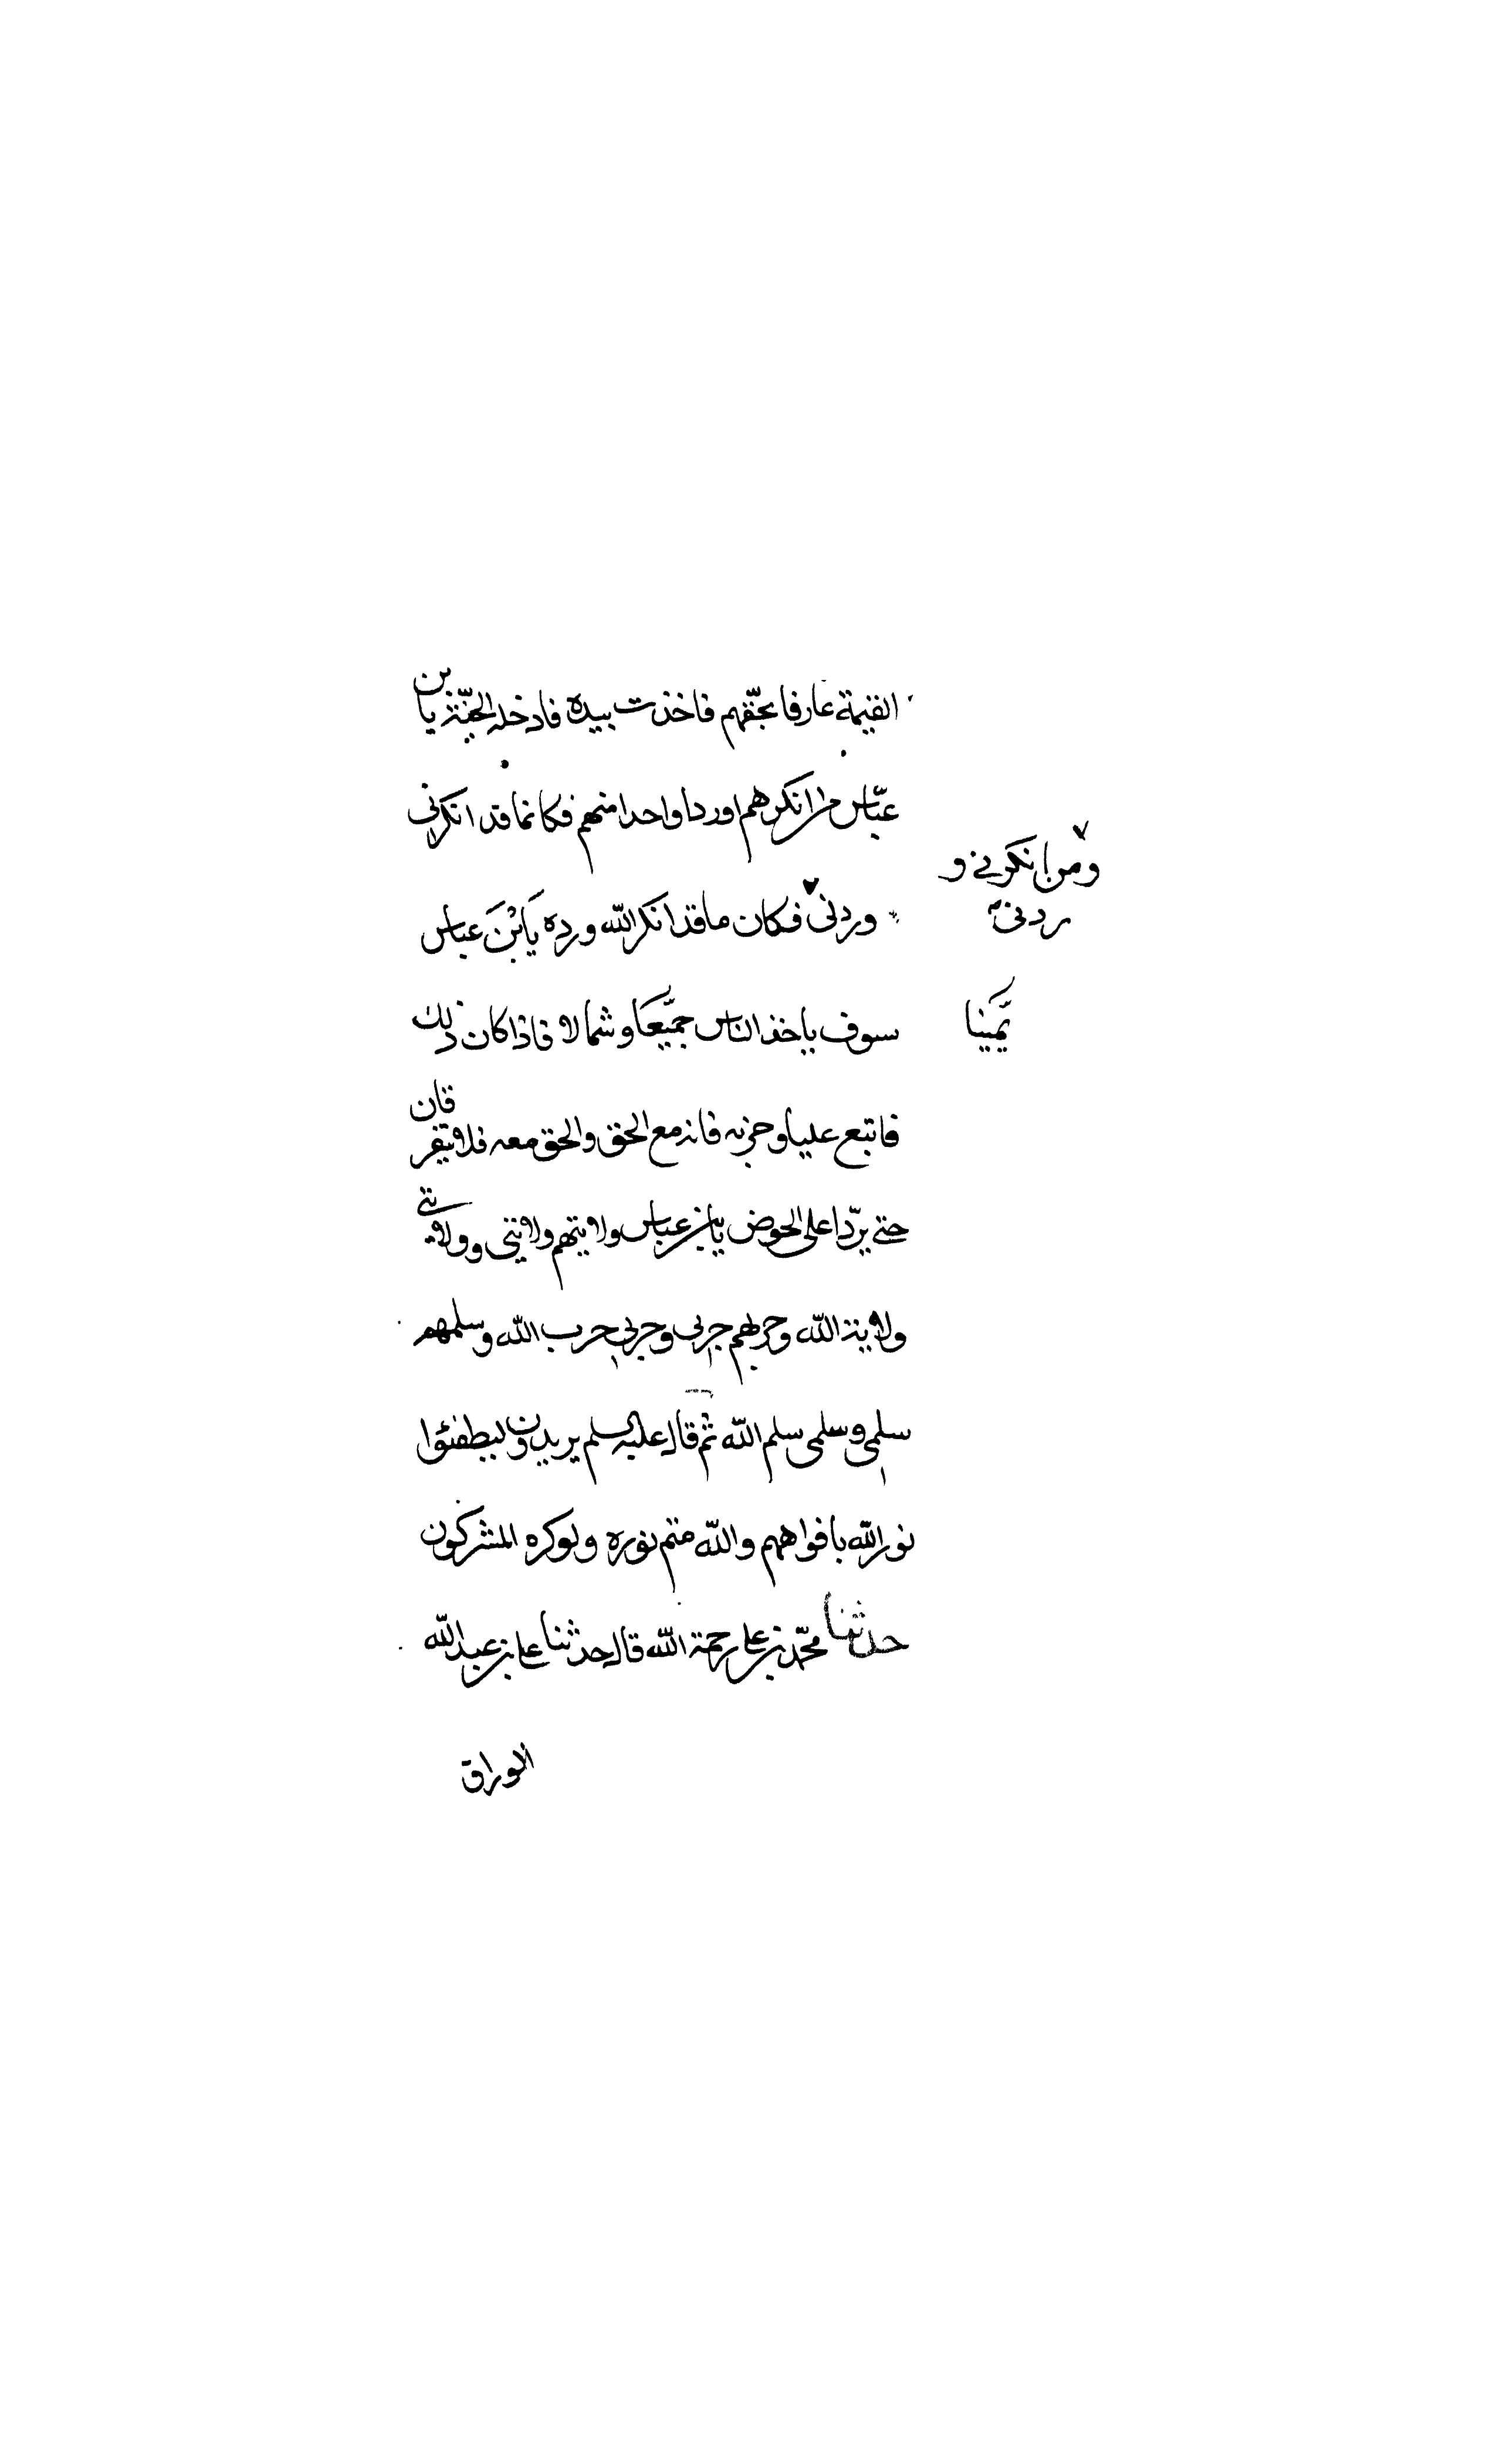 القيمة عارفا بحقهم فاخذت بيده فادخله الجنّة يا بن
عبّاس من انكرهم اورد واحدا منهم فكانما قد انكرنى
وردنى فكان ما قد انكر الله ورده يَا بْنَ عباس
ومن انكرني و
ردني
سوف ياخذ الناس جميّعَا وشمالا فاذا كان ذلك
يَّمينا
فاتبع عليا وحزبه فانه مع الحق والحق معه فلا يتفرقان
حتى يرّدا على الحوض يا بن عباس ولايتهم ولايتى وولايتى
ولاية الله وحربهم حربى وحربى حرب الله وسلمهم
سلمى وسلمى سلم الله ثم قال عليه السلم يريدون ليطفئوا
نور الله بافواههم والله متم نوره ولو كره المشركون
حدثنا محمّد بن على رحمة الله قال حدثنا على بن عبد الله
الوراق